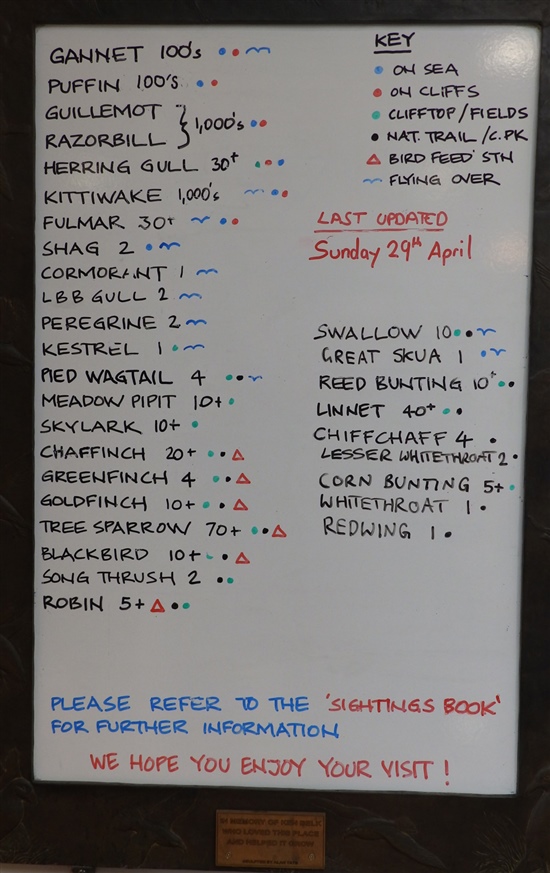 GANNET 100's
PUFFIN 100'S
GUILLEMOT
RAZORBILL } 1,000's
HERRING GULL 30+
KITTIWAKE 1,000's
FULMAR 30+
SHAG 2
CORMORANT 1
LBB GULL 2
PEREGRINE 2
KESTREL 1
PIED WAGTAIL 4
MEADOW PIPIT 10+
SKYLARK 10+
CHAFFINCH 20+
GREENFINCH 4
GOLDFINCH 10+
TREE SPARROW 70+
BLACKBIRD 10+
SONG THRUSH 2
ROBIN 5+
KEY
ON SEA
ON CLIFFS
CLIFFTOP/FIELDS
NAT. TRAIL /C.PK
BIRD FEED STN
FLYING OVER
LAST UPDATED
Sunday 29th April
SWALLOW 10
GREAT SKUA 1
REED BUNTING 10+
LINNET 40+
CHIFFCHAFF 4
LESSER WHITETHROAT 2
CORN BUNTING 5+
WHITETHROAT 1
REDWING 1
PLEASE REFER TO THE 'SIGHTINGS BOOK'
FOR FURTHER INFORMATION
WE HOPE YOU ENJOY YOUR VISIT !
IN MEMORY OF
WHO LOVED THIS PLACE
AND HELPED IT GROW